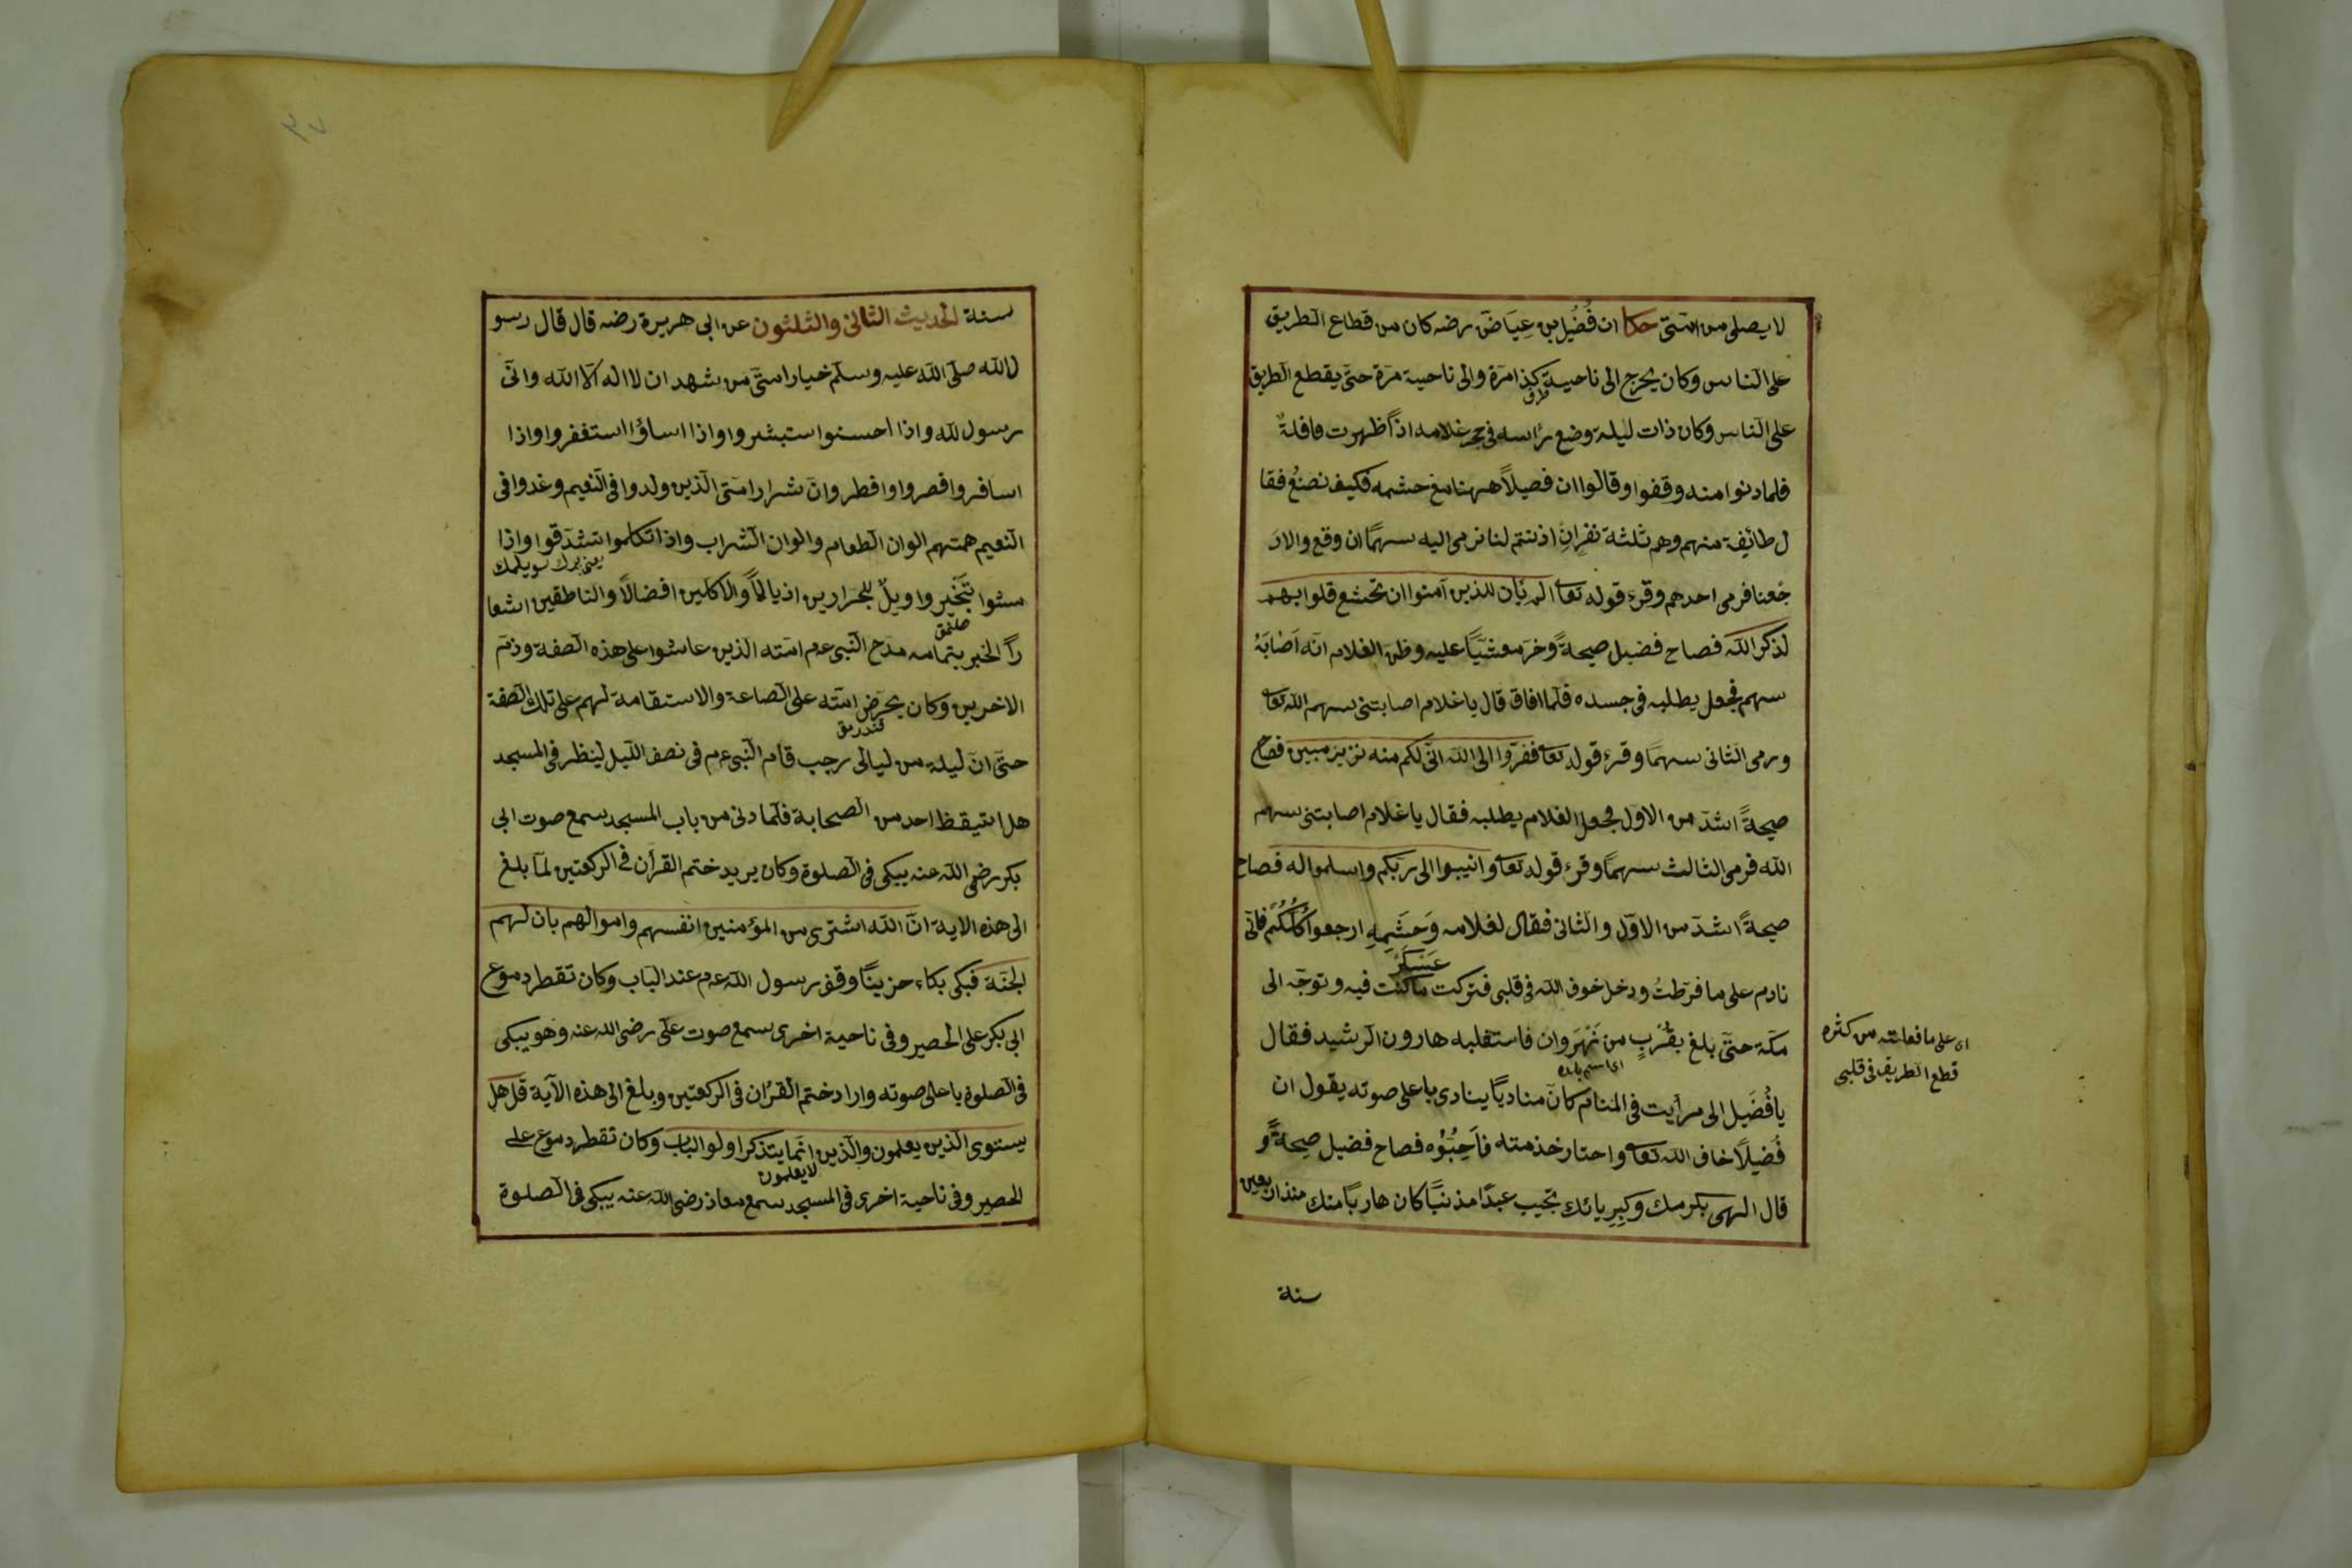 لا يصلى من امتى حكا ان فُضَيْل بن عِيَاضَ رضه كان من قطاع الطريق
على الناس وكان يخرج الى ناحية كذا مرة والى ناحية مرة حتى يقطع الطريق
طرف
على الناس وكان ذات ليلة وضع رأسه فى حجر غلامه اذاً ظهرت قافلةٌ
فلما دنوا منه وقفوا وقالوا ان فضيلاً ههنا مع حشمه فكيف نصنعُ فقا
ل طائفة منهم وهم ثلثة نفر ان اذنتم لنا نرمى اليه سهمًا ان وقع والا رَ
جعنا فرمى احدهم وقرء قوله تعا الم يأن للذين آمنوا ان تخشع قلوبهم
لذكر الله فصاح فضيل صيحةً وخرّ مغشيًّا عليه وظن الغلام انّه اَصَابَهُ
سهم فجعل يطلبه فى جسده فلما افاق قال يا غلام اصابتنى سهم الله تعا
ورمى الثانى سهمًا وقرء قوله تعا ففرّوا الى الله انّى لكم منه نزير مبين فصاح
صيحةً اشدّ من الاول فجعل الغلام يطلبه فقال يا غلام اصابتنى سهم
الله فرمى الثالث سهمًا وقرء قوله تعا وانيبوا الى ربكم واسلموا له فصاح
صيحةً اشدّ من الاوّل والثانى فقال لغلامه وَحَشَمِهِ ارجعوا كُلُّكُمْ فانّى
عَسْكَرْ
نادم على ما فرّطتُ ودخل خوف الله فى قلبى فتركت ما كنت فيه وتوجّه الى
مكّة حتّى بلغ بقُرْبٍ من نَهْرَوان فاستقلبه هارون الرشيد فقال
اى اسم بلده
يا فُضَيل انى رأيت فى المنام كانّ مناديًا ينادى باعلى صوته يقول ان
فُضيلاً خاف الله تعا واختار خذمته فاَحِبُّوُه فصاح فضيل صيحةً و
قال الهى بكرمك وكبريائك تجيب عبدًا مذنبًا كان هاربًا منك منذ اربعين
سنة
اى على ما فعلته من كثره
قطع الطريق فى قلبى
سنة الحديث الثانى والثلثون عن ابى هريرة رضه قال قال رسو
ل الله صلّى الله عليه وسلّم خيار امتى من شهد ان لا اله الا الله وانّى
رسول الله واذا احسنوا ستبشروا واذا اساؤا استغفروا واذا
اسافروا قصروا وافطر وانّ شرار امّتى الذين ولدوا فى النعيم وغدوا فى
النعيم همتهم الوان الطعام والوان الشراب واذا تكلموا تشدّقوا واذا
سشوا تبختروا ويلٌ للجرارين اذيالهًا والاكلين افضالاً والناطقين اشعا
راً الخبر بتمامه مدح النبى عم امته الذين عاشوا على هذه الصفة وذمّ
الاخرين وكان يحرّض امّته على الصاعة والاستقامة لهم على تلك الصفة
حتّى انّ ليلة من ليالى رجب قام النبى عم فى نصف الليل لينظر فى المسجد
هل استيقظ احد من الصحابة فلما دنى من باب المسجد سمع صوت ابى
بكر رضى الله عنه يبكى فى الصلوة وكان يريد ختم القرأن فى الركعتين لمّا بلغ
الى هذه الاية انّ الله اشترى من المؤمنين انفسهم واموالهم بان لهم
الجنّة فبكى بكاء حزينًا وقف رسول الله عم عند الباب وكان تقطر دموع
ابى بكر على الحصير وفى ناحية اخرى سمع صوت على رضى الله عنه وهو يبكى
فى الصلوة باعلى صوته واراد ختم القرُان فى الركعتين وبلغ الى هذه الآية قل هل
يستوى الذين يعلمون والّذين انّما يتذكر اولو الباب وكان تقطر دموع على
لا يعلمون
الحصير وفى ناحية اخرى فى المسجد سمع معاذ رضى الله عنه يبكى فى الصلوة